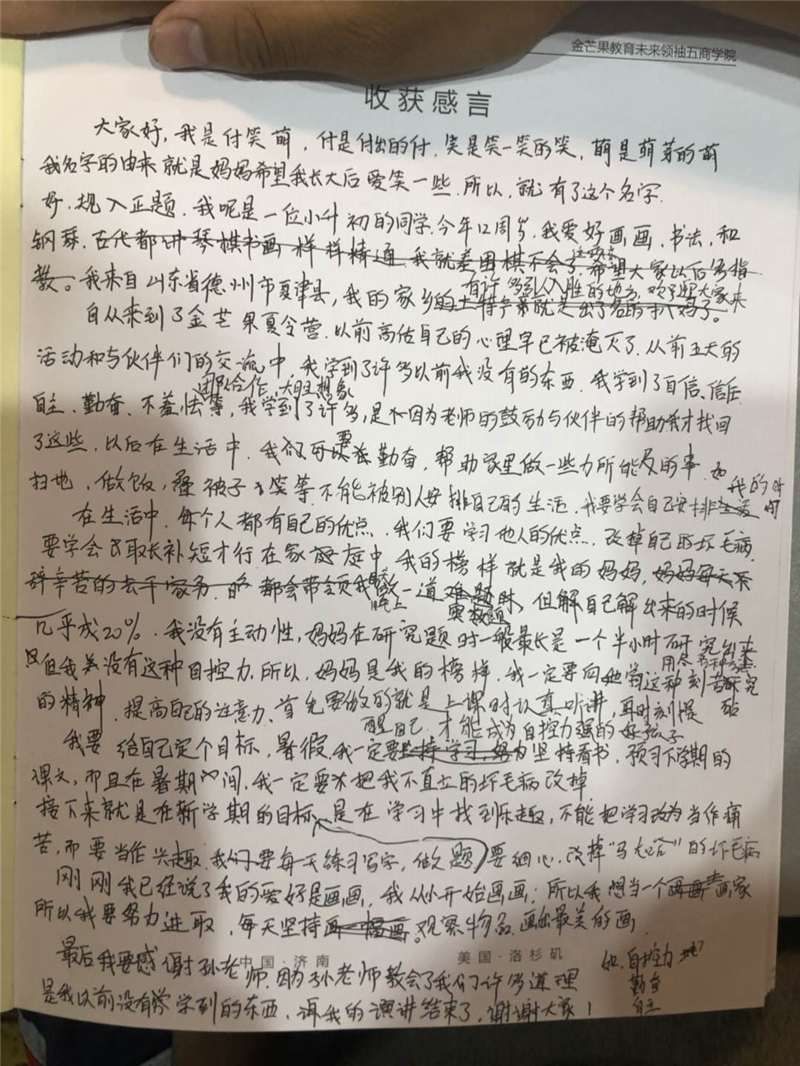 金芒果教育未来领袖五商学院
收获感言
大家好，我是付笑萌，付是付出的付，笑是笑一笑的笑，萌是萌芽的萌
我名字的由来就是妈妈希望我长大后爱笑一些，所以，就有了这个名字.
好，规入正题，我呢是一位小升初的同学，今年12周岁，我爱好画画、书法，和
钢琴，古代都讲琴棋书画样样精通，我就差围棋不会了，希望大家以后多指
教。我来自山东省德州市夏津县，我的家乡有许多引人入胜的地方，欢迎大家来
自从来到了金芒果夏令营，以前高估自己的心理早已被淹灭了，从前五天的
活动和与伙伴们的交流中，我学到了许多以前我没有的东西，我学到了自信、信任
团队合作，大胆想象
自主、勤奋、不羞怯等，我学到了许多，是因为老师的鼓励与伙伴的帮助我才找回
了这些，以后在生活中，我们要勤奋，帮助家里做一些力所能及的事，如
扫地，做饭，叠被子等，不能被别人安排自己的生活，我要学会自己安排我的时间
在生活中，每个人都有自己的优点，我们要学习他人的优点，改掉自己的坏毛病，
要学会取长补短才行，在家庭中，我的榜样就是我的妈妈，妈妈每天不
辞辛苦的去干家务，都会带领我做一道难题
晚上
奥数题
但解自己解出来的时候
几乎成20%，我没有主动性，妈妈在研究题时一般最长是一个半小时研究出来
但我并没有这种自控力，所以，妈妈是我的榜样，我一定要向她学这种刻苦钻研
的精神，提高自己的注意力，首先要做的就是上课时认真听讲，耳时刻提
醒自己，才能成为自控力强的好孩子
我要给自己定个目标，暑假，我一定要坚持看书，预习下学期的
课文，而且在暑期间，我一定要把我不直立的坏毛病改掉
接下来就是在新学期的目标，是在学习中找到乐趣，不能把学习当作痛
苦，而要当作兴趣，我们要每天练习写字，做题，要细心，改掉“马大哈”的坏毛病
刚刚我已经说了我的爱好是画画，我从小开始画画，所以我想当一个画家
所以我要努力进取，每天坚持画一幅画。观察物品，画出最美的画
中国·济南
美国·洛杉矶
最后我要感谢孙老师，因为孙老师教会了我们许多道理
如，自控力
勤奋
自主
是我以前没有学到的东西，我的演讲结束了，谢谢大家！